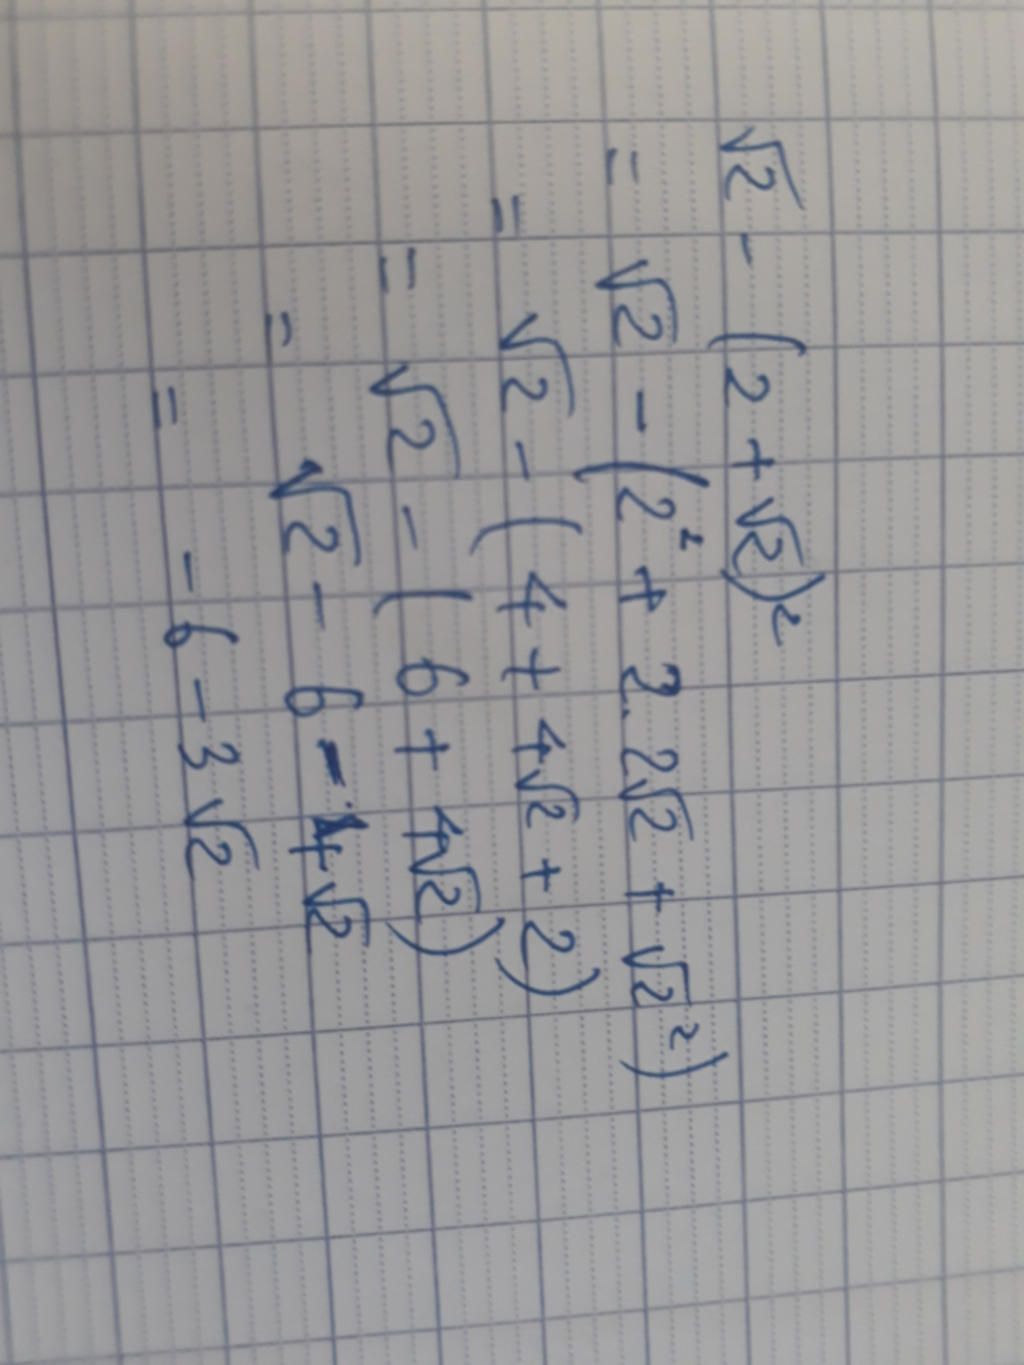 √2 - (2 + √2)²
= √2 - (2² + 2.2√2 + √2²)
= √2 - (4 + 4√2 + 2)
= √2 - (6 + 4√2)
= √2 - 6 - 4√2
= - 6 - 3√2